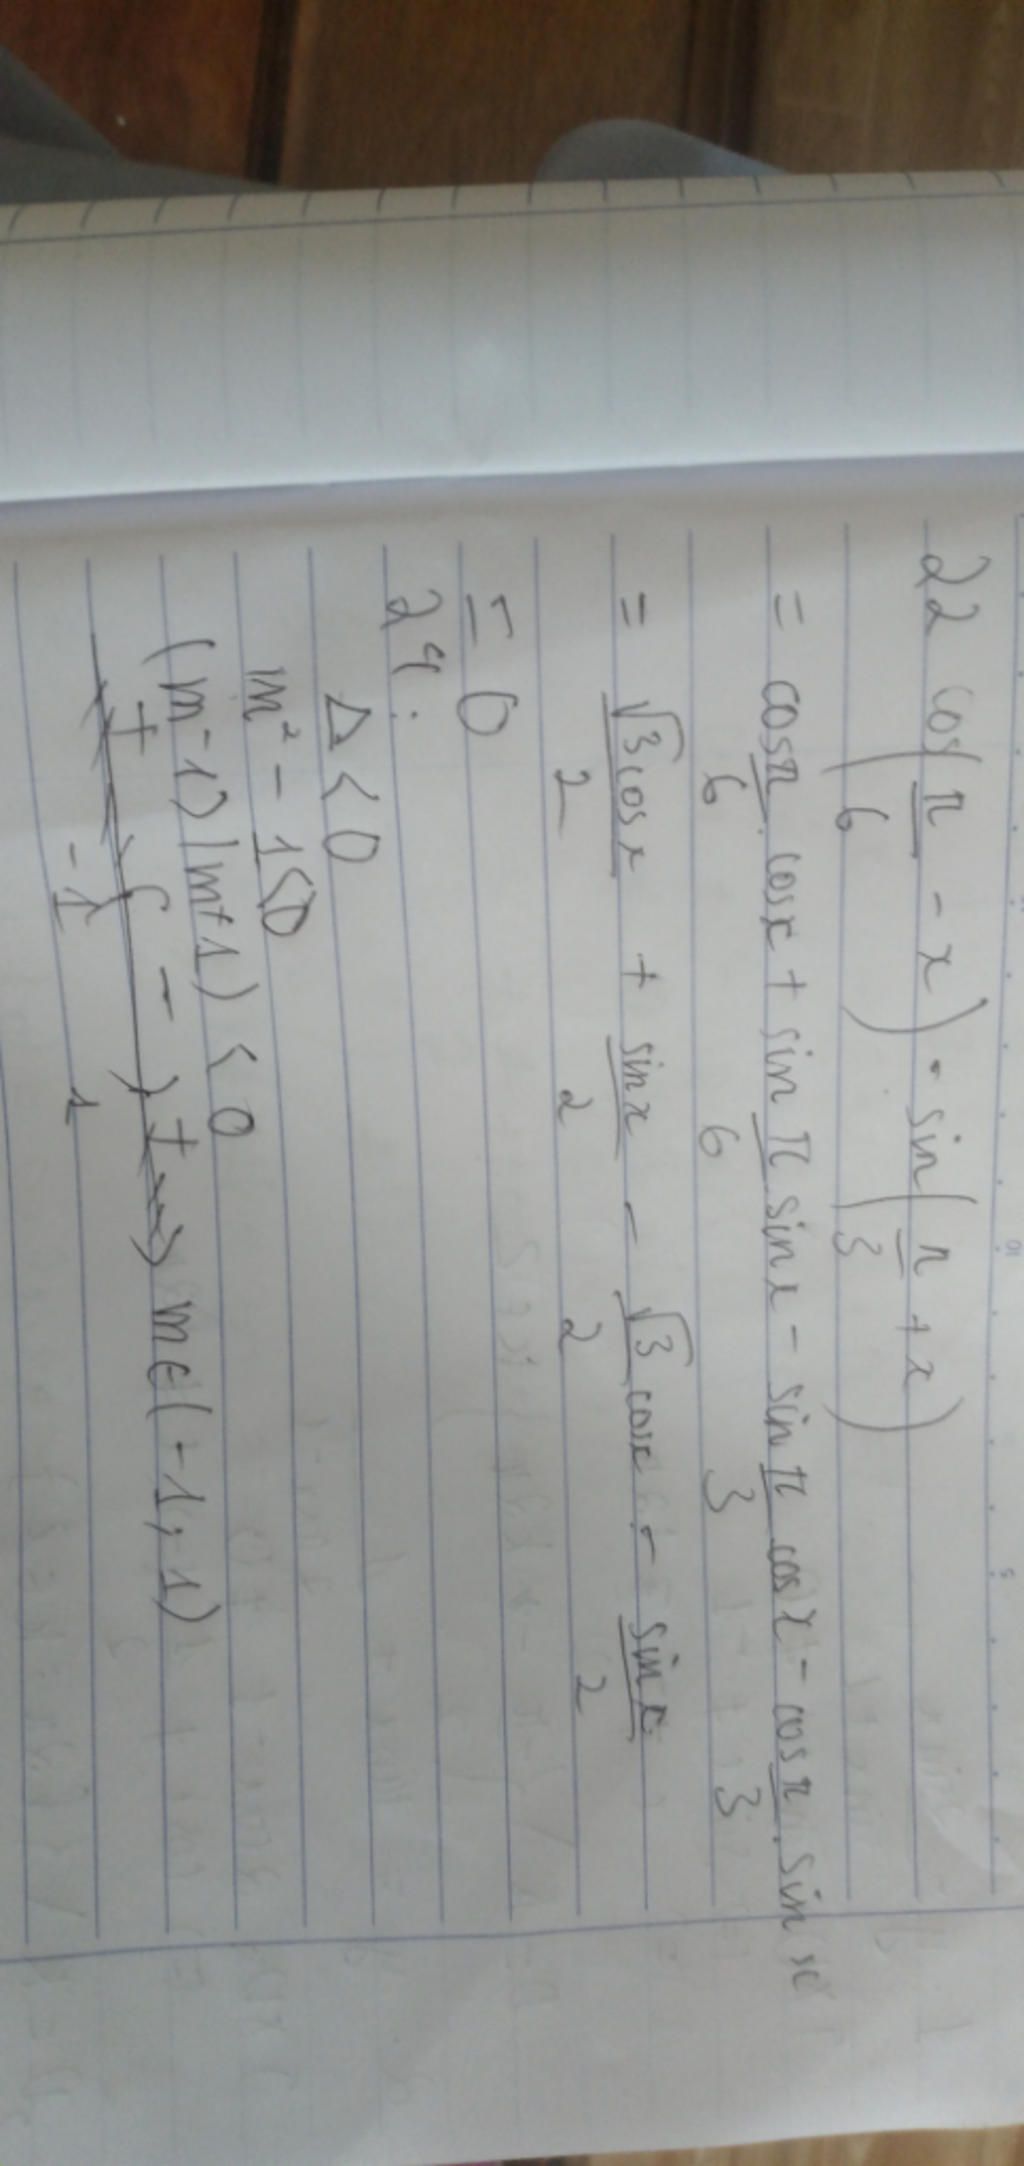 22 cos(π/6 - x) - sin(π/3 + x)
= cos π/6 . cosx + sin π/6 . sinx - sin π/3 cosx - cos π/3 . sin x
= √3cosx/2 + sinx/2 - √3 cosx/2 - sinx/2
= 0
24:
Δ < 0
m² - 1 < 0
(m - 1)(m + 1) < 0
+ ( - ) + → m ∈ (-1, 1)
-1 1